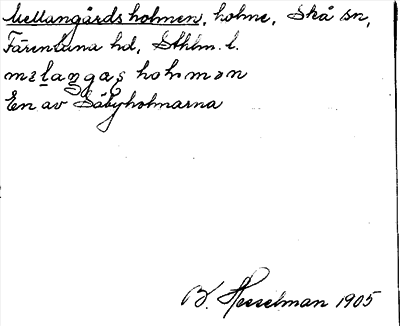 Mellangårdsholmen, holme, Skå sn,
Färentuna hd, Sthlm. l.
melangaṣholmən
En av Säbyholmarna
B. Hesselman 1905